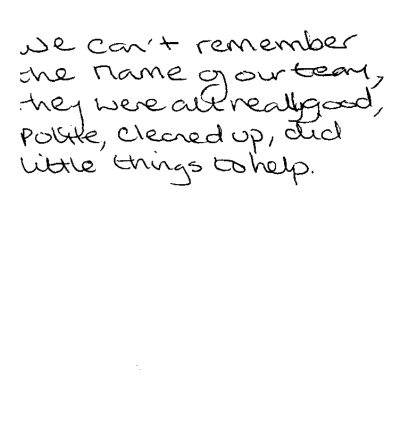 We can't remember
the name of our team,
they were all really good,
Polite, cleaned up, did
little things to help.